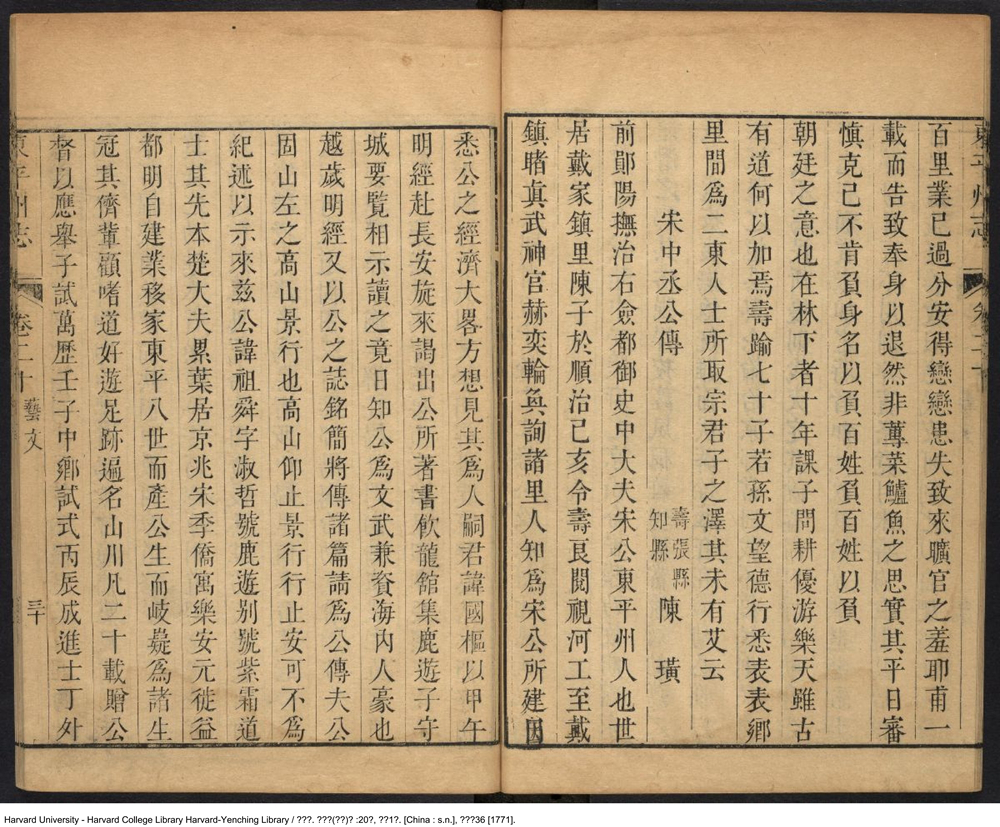 百里業已過分安得戀戀患失致來曠官之羞耶甫一
載而告致奉身以退然非蓴菜鱸魚之思實其平日審
慎克己不肯負身名以負百姓負百姓以負
朝廷之意也在林下者十年課子問耕優游樂天雖古
有道何以加焉壽踰七十子若孫文望德行悉表表鄉
里閒爲二東人士所取宗君子之澤其未有艾云
宋中丞公傳 壽張縣知縣 陳 璜
前鄖陽撫治右僉都御史中大夫宋公東平州人也世
居戴家鎮里陳子於順治己亥令壽良閱視河工至戴
鎮睹眞武神官赫奕輪奐詢諸里人知爲宋公所建因
悉公之經濟大畧方想見其爲人嗣君諱國樞以甲午
明經赴長安旋來謁出公所著書飲龍館集鹿遊子守
城要覽相示讀之竟日知公爲文武兼資海內人豪也
越歲明經又以公之誌銘簡將傳諸篇請爲公傳夫公
固山左之高山景行也高山仰止景行行止安可不爲
紀述以示來茲公諱祖舜字淑哲號鹿遊別號紫霜道
士其先本楚大夫累葉居京兆宋季僑寓樂安元徙益
都明自建業移家東平八世而產公生而岐嶷爲諸生
冠其儕輩顧嗜道好遊足跡遍名山川凡二十載贈公
督以應舉子試萬歷壬子中鄉試式丙辰成進士丁外
東平州志 卷二十 藝文 三十
Harvard University - Harvard College Library Harvard-Yenching Library / ???. ???(??)? :20?, ??1?. [China : s.n.], ???36 [1771].